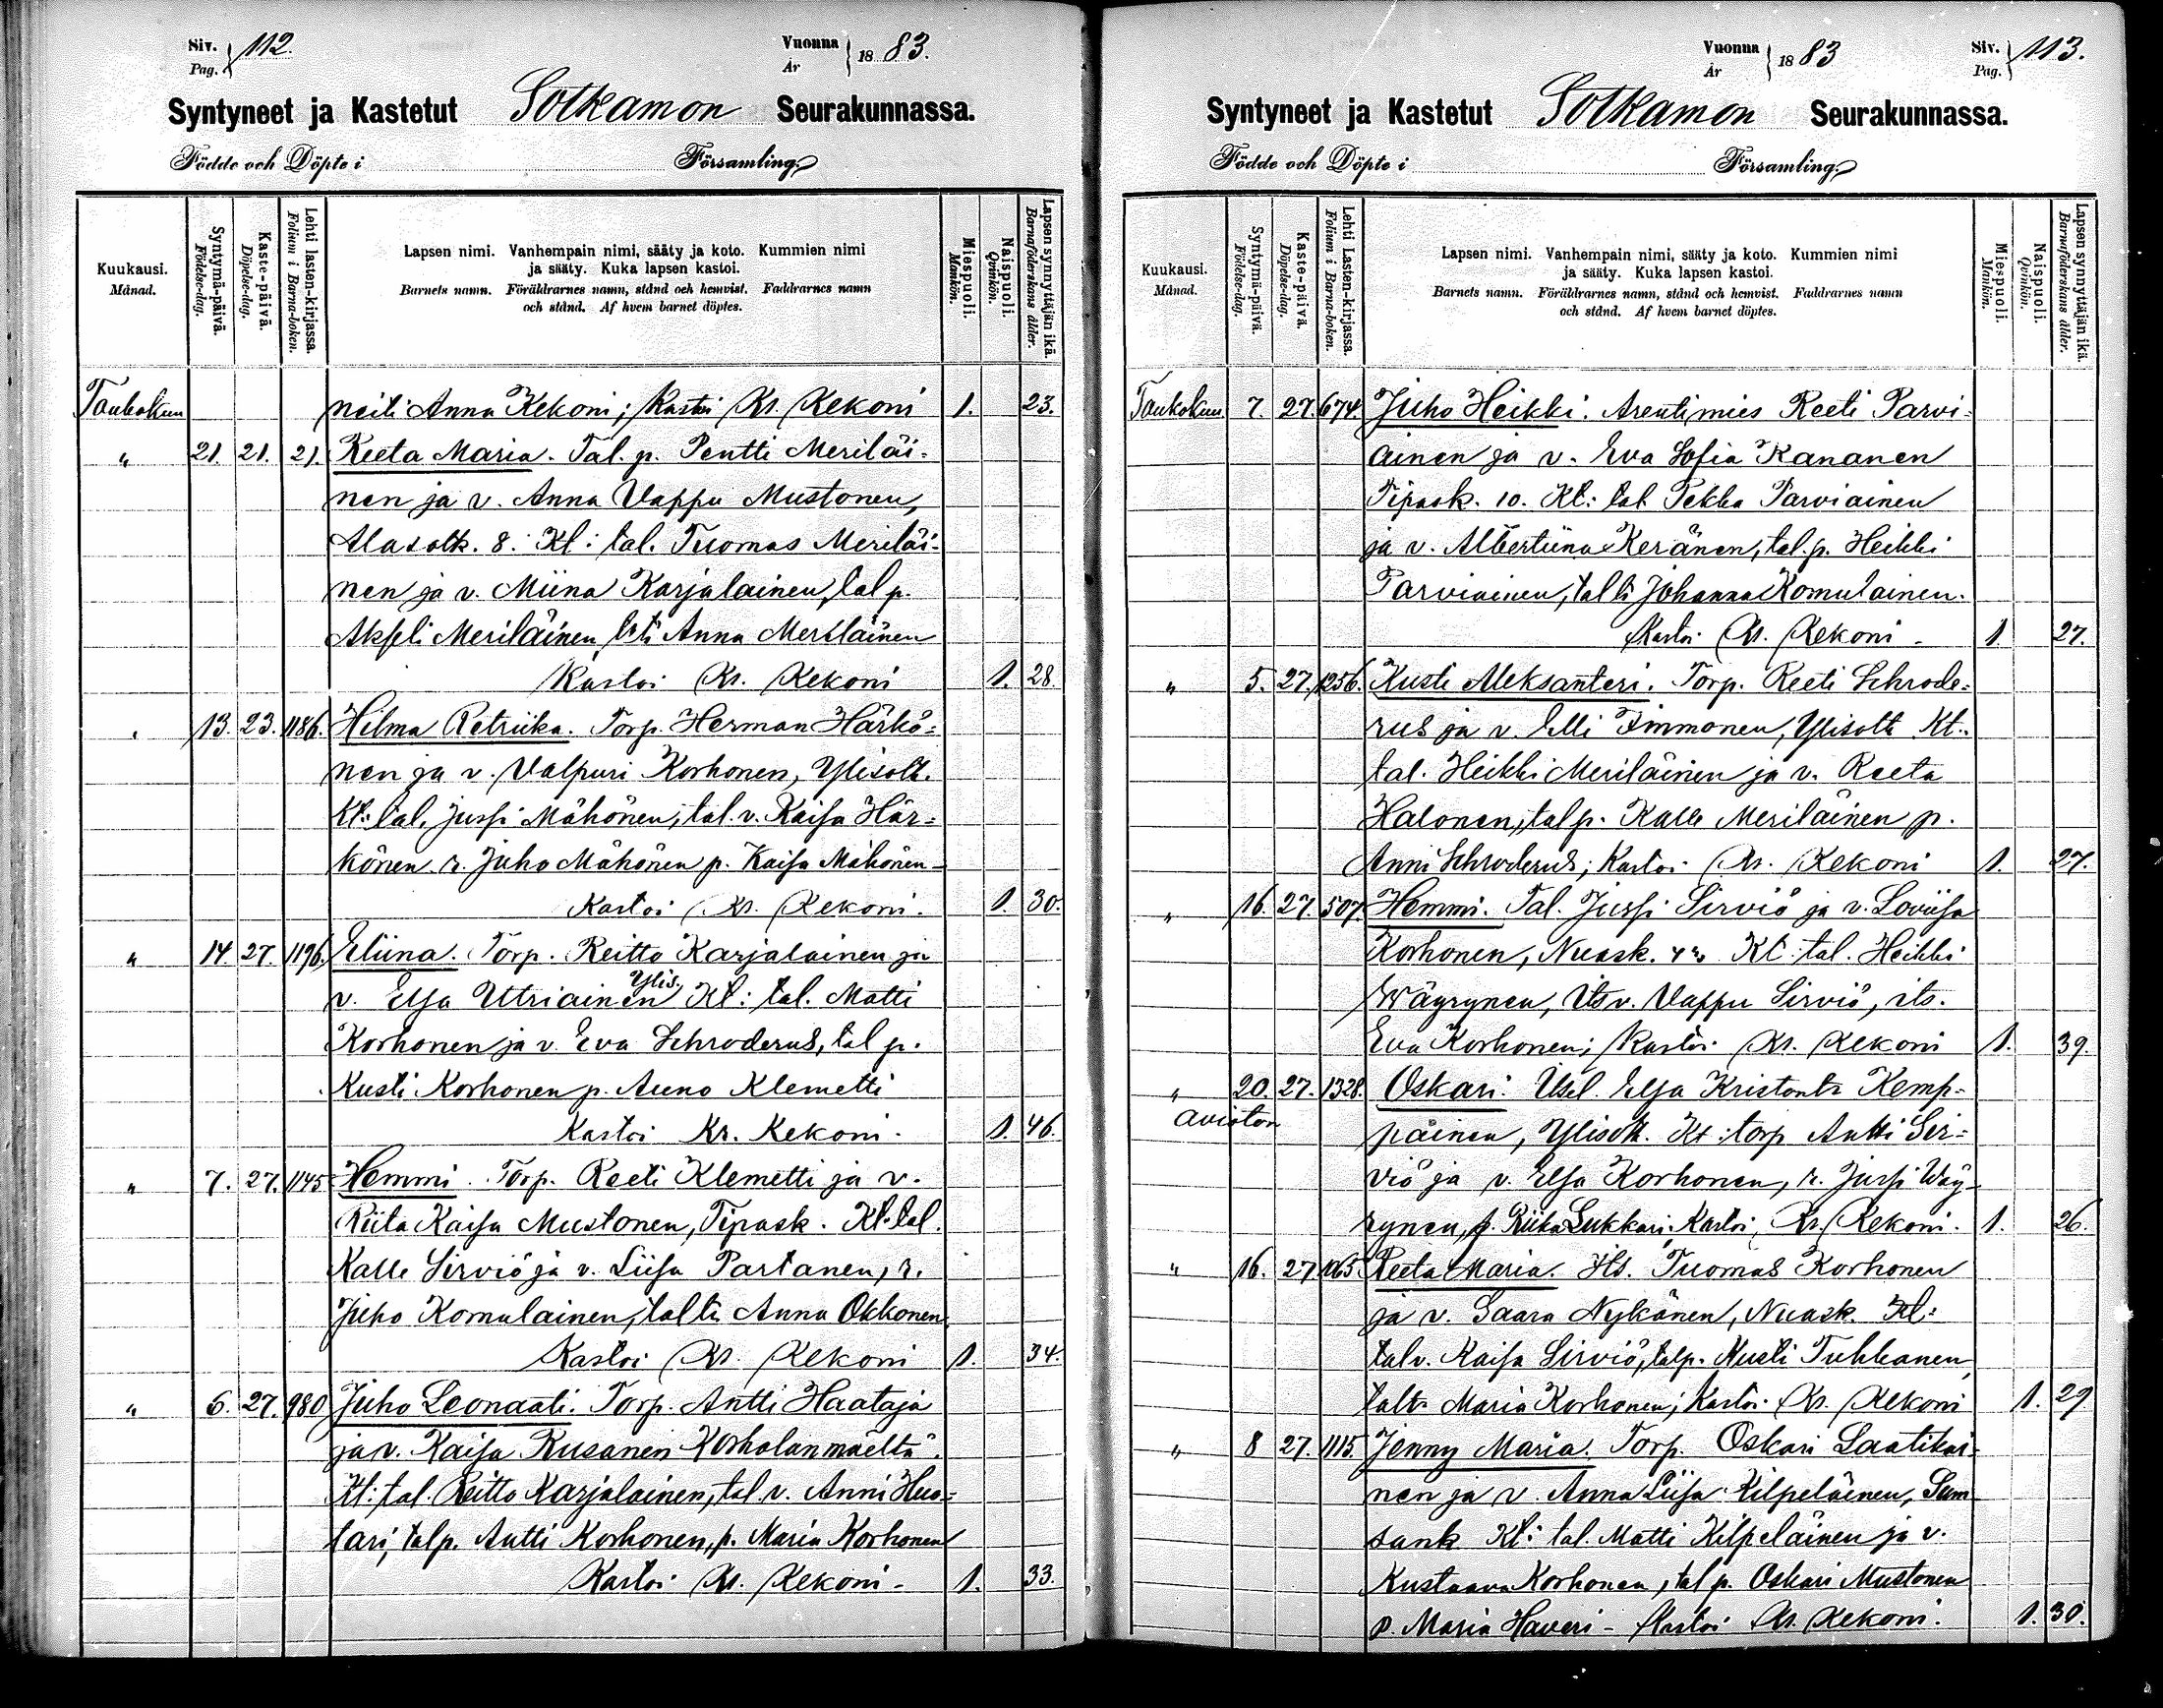 Siv. Pag. 112.
Vuonna År 1883.
Syntyneet ja Kastetut Sotkamon Seurakunnassa.
Födde och Döpte i Församling.
Kuukausi. Månad.
Syntymä-päivä. Födelse-dag.
Kaste-päivä. Döpelse-dag.
Lehti lasten-kirjassa. Folium i Barna-boken.
Lapsen nimi. Vanhempain nimi, sääty ja koto. Kummien nimi
ja sääty. Kuka lapsen kastoi.
Barnets namn. Föräldrarnes namn, stånd och hemvist. Faddrarnes namn
och stånd. Af hvem barnet döptes.
Miespuoli. Mankön.
Naispuoli. Qvinkön.
Lapsen synnyttäjän ikä. Barnaföderskans ålder.
Toukokuu neiti Anna Kekoni; Kastoi Kr. Kekoni 1. 23.
" 21. 21. 21. Reeta Maria. Tal. p. Pentti Meriläi-
nen ja v. Anna Vappu Mustonen,
Alasotk. 8. Kt: tal. Tuomas Meriläi-
nen ja v. Miina Karjalainen, tal p.
Akseli Meriläinen, Anna Meriläinen
Kastoi Kr. Kekoni 1. 28.
" 13. 23. 1186. Hilma Retriika. Torp. Herman Härkö-
nen ja v. Valpuri Korhonen, Ylisotk.
Kt: tal. Jussi Mähönen, tal. v. Kaisa Här-
könen. r. Juho Mähönen p. Kaisa Mähönen-
Kastoi Kr. Kekoni. 1. 30.
" 14. 27. 1196. Eliina. Torp. Reitto Karjalainen ja
v. Elsa Utriainen Ylis. Kt: tal. Matti
Korhonen ja v. Eva Schroderus, tal p.
Kusti Korhonen p. Auno Klemetti
Kastoi Kr. Kekoni. 1. 46.
" 7. 27. 1145 Hemmi. Torp. Reeti Klemetti ja v.
Riita Kaisa Mustonen, Tipask. Kt: tal.
Kalle Sirviö ja v. Liisa Partanen, r.
Juho Komulainen, talti Anna Okkonen
Kastoi Kr. Kekoni 1. 34.
" 6. 27. 980 Juho Leonaati. Torp. Antti Haataja
ja v. Kaisa Rusanen Korholanmäeltä.
Kt: tal. Reitto Karjalainen, tal. v. Anni Huo-
tari, talp. Antti Korhonen, p. Maria Korhonen
Kastoi Kr. Kekoni - 1. 33.
Vuonna År 1883
Siv. Pag. 113.
Syntyneet ja Kastetut Sotkamon Seurakunnassa.
Födde och Döpte i Församling.
Kuukausi. Månad.
Syntymä-päivä. Födelse-dag.
Kaste-päivä. Döpelse-dag.
Lehti Lasten-kirjassa. Folium i Barna-boken.
Lapsen nimi. Vanhempain nimi, sääty ja koto. Kummien nimi
ja sääty. Kuka lapsen kastoi.
Barnets namn. Föräldrarnes namn, stånd och hemvist. Faddrarnes namn
och stånd. Af hvem barnet döptes.
Miespuoli. Mankön.
Naispuoli. Qvinkön.
Lapsen synnyttäjän ikä. Barnaföderskans ålder.
Toukokuu. 7. 27. 674. Juho Heikki. Arentimies Reeti Parvi-
ainen ja v. Eva Sofia Kananen
Tipask. 10. Kt: tal. Pekka Parviainen
ja v. Albertiina Keränen, tal. p. Heikki
Parviainen, talti Johanna Komulainen.
Kastoi Kr. Kekoni - 1. 27.
" 5. 27. 1256. Kusti Aleksanteri. Torp. Reeti Schrode-
rus ja v. Elli Timmonen, Ylisotk Kt.
tal. Heikki Meriläinen ja v. Reeta
Halonen, talp. Kalle Meriläinen p.
Anni Schroderus; Kastoi Kr. Kekoni 1. 27.
" 16. 27. 507. Hemmi. Tal. Jussi Sirviö ja v. Loviisa
Korhonen, Nuask. Kt: tal. Heikki
Wäyrynen, its v. Vappu Sirviö, its.
Eva Korhonen; Kastoi Kr. Kekoni 1. 39.
" 20. 27. 1328. Oskari. Itsel. Elsa Kristontr Kemp-
Avioton päinen, Ylisotk. Kt: torp Antti Sir-
viö ja v. Elsa Korhonen, r. Jussi Wäy-
rynen, p. Riika Lukkari, Kastoi, Kr. Kekoni. 1. 26.
" 16. 27 1065 Reeta Maria. Its. Tuomas Korhonen
ja v. Saara Nykänen, Nuask. Kt:
talv. Kaisa Sirviö, talp. Kusti Tuhkanen,
talt. Maria Korhonen; Kastoi Kr. Kekoni 1. 29
" 8 27. 1115. Jenny Maria. Torp. Oskari Laatikai-
nen ja v. Anna Liisa Kilpeläinen, Sum
sank Kt: tal. Matti Kilpeläinen ja v.
Kustaava Korhonen, tal p. Oskari Mustonen
p. Maria Haveri - Kastoi Kr. Kekoni. 1. 30.